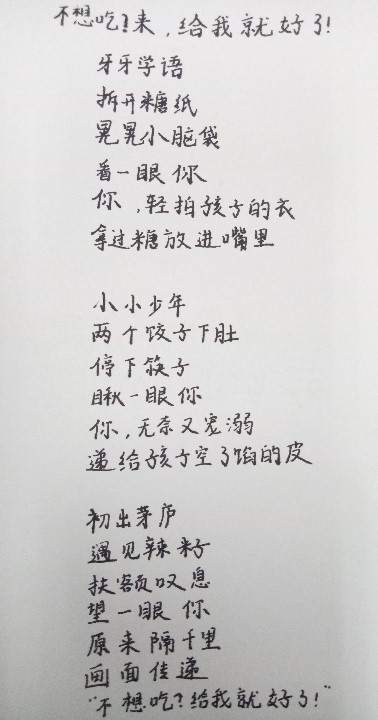 不想吃?来,给我就好了!
牙牙学语
拆开糖纸
晃晃小脑袋
看一眼你
你,轻拍孩子的衣
拿过糖放进嘴里
小小少年
两个饺子下肚
停下筷子
瞅一眼你
你,无奈又宠溺
递给孩子空了馅的皮
初出茅庐
遇见辣籽
扶额叹息
望一眼你
原来隔千里
画面传递
"不想吃?给我就好了!"